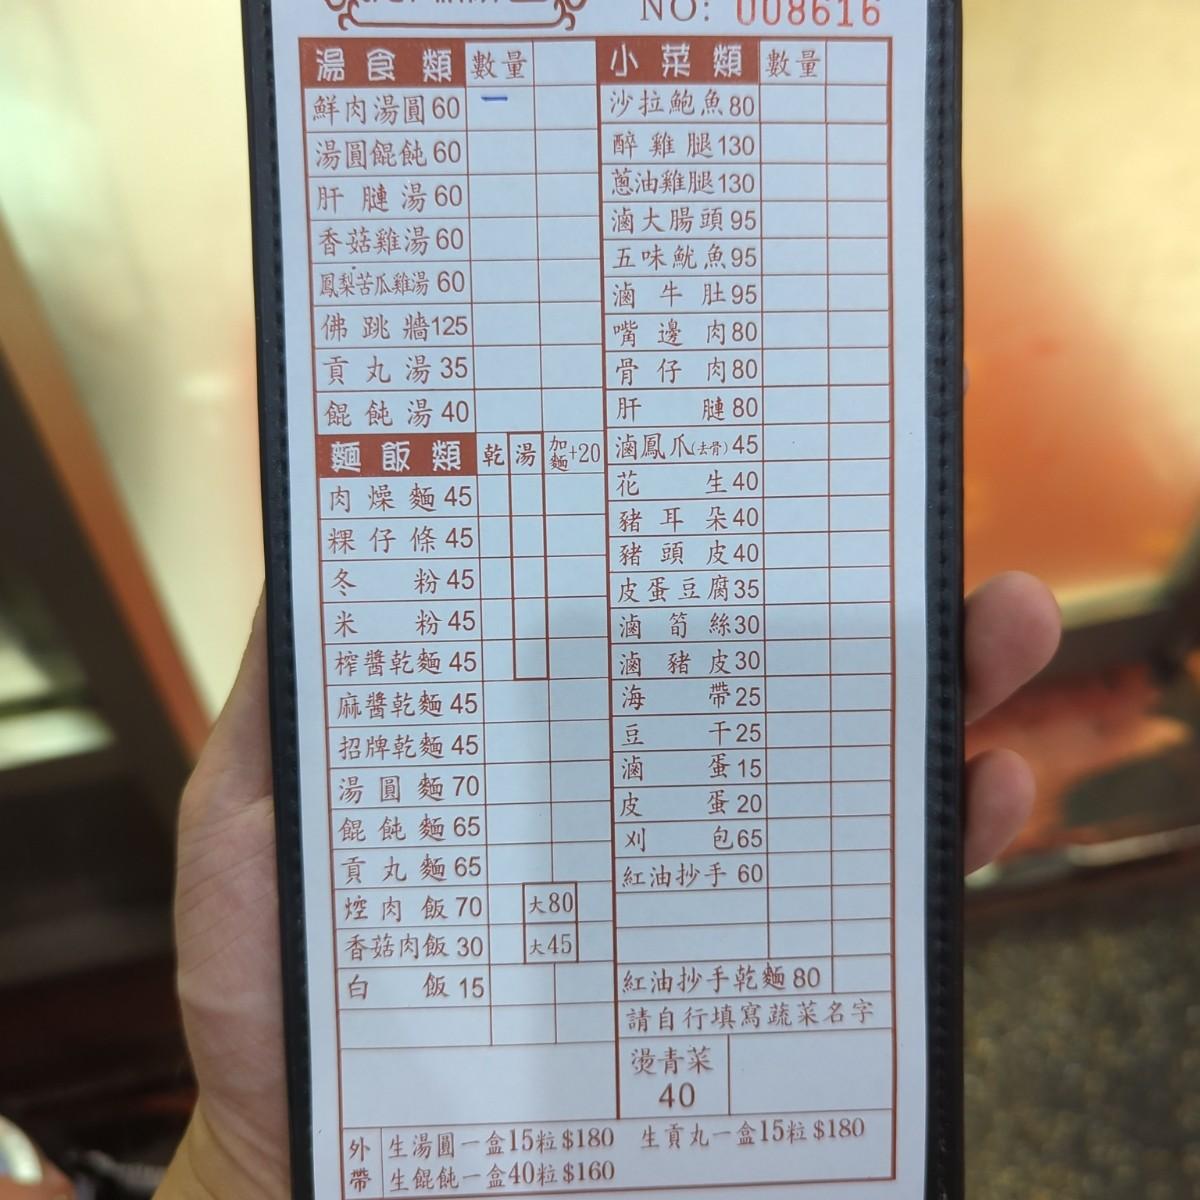 NO: 008616
湯食類 數量
鮮肉湯圓 60 一
湯圓餛飩 60
肝膁湯 60
香菇雞湯 60
鳳梨苦瓜雞湯 60
佛跳牆 125
貢丸湯 35
餛飩湯 40
麵飯類 乾 湯 加麵+20
肉燥麵 45
粿仔條 45
冬粉 45
米粉 45
榨醬乾麵 45
麻醬乾麵 45
招牌乾麵 45
湯圓麵 70
餛飩麵 65
貢丸麵 65
焢肉飯 70 大80
香菇肉飯 30 大45
白飯 15
小菜類 數量
沙拉鮑魚 80
醉雞腿 130
蔥油雞腿 130
滷大腸頭 95
五味魷魚 95
滷牛肚 95
嘴邊肉 80
骨仔肉 80
肝膁 80
滷鳳爪(去骨) 45
花生 40
豬耳朵 40
豬頭皮 40
皮蛋豆腐 35
滷筍絲 30
滷豬皮 30
海帶 25
豆干 25
滷蛋 15
皮蛋 20
刈包 65
紅油抄手 60
紅油抄手乾麵 80
請自行填寫蔬菜名字
燙青菜
40
外帶
生湯圓一盒15粒$180 生貢丸一盒15粒$180
生餛飩一盒40粒$160